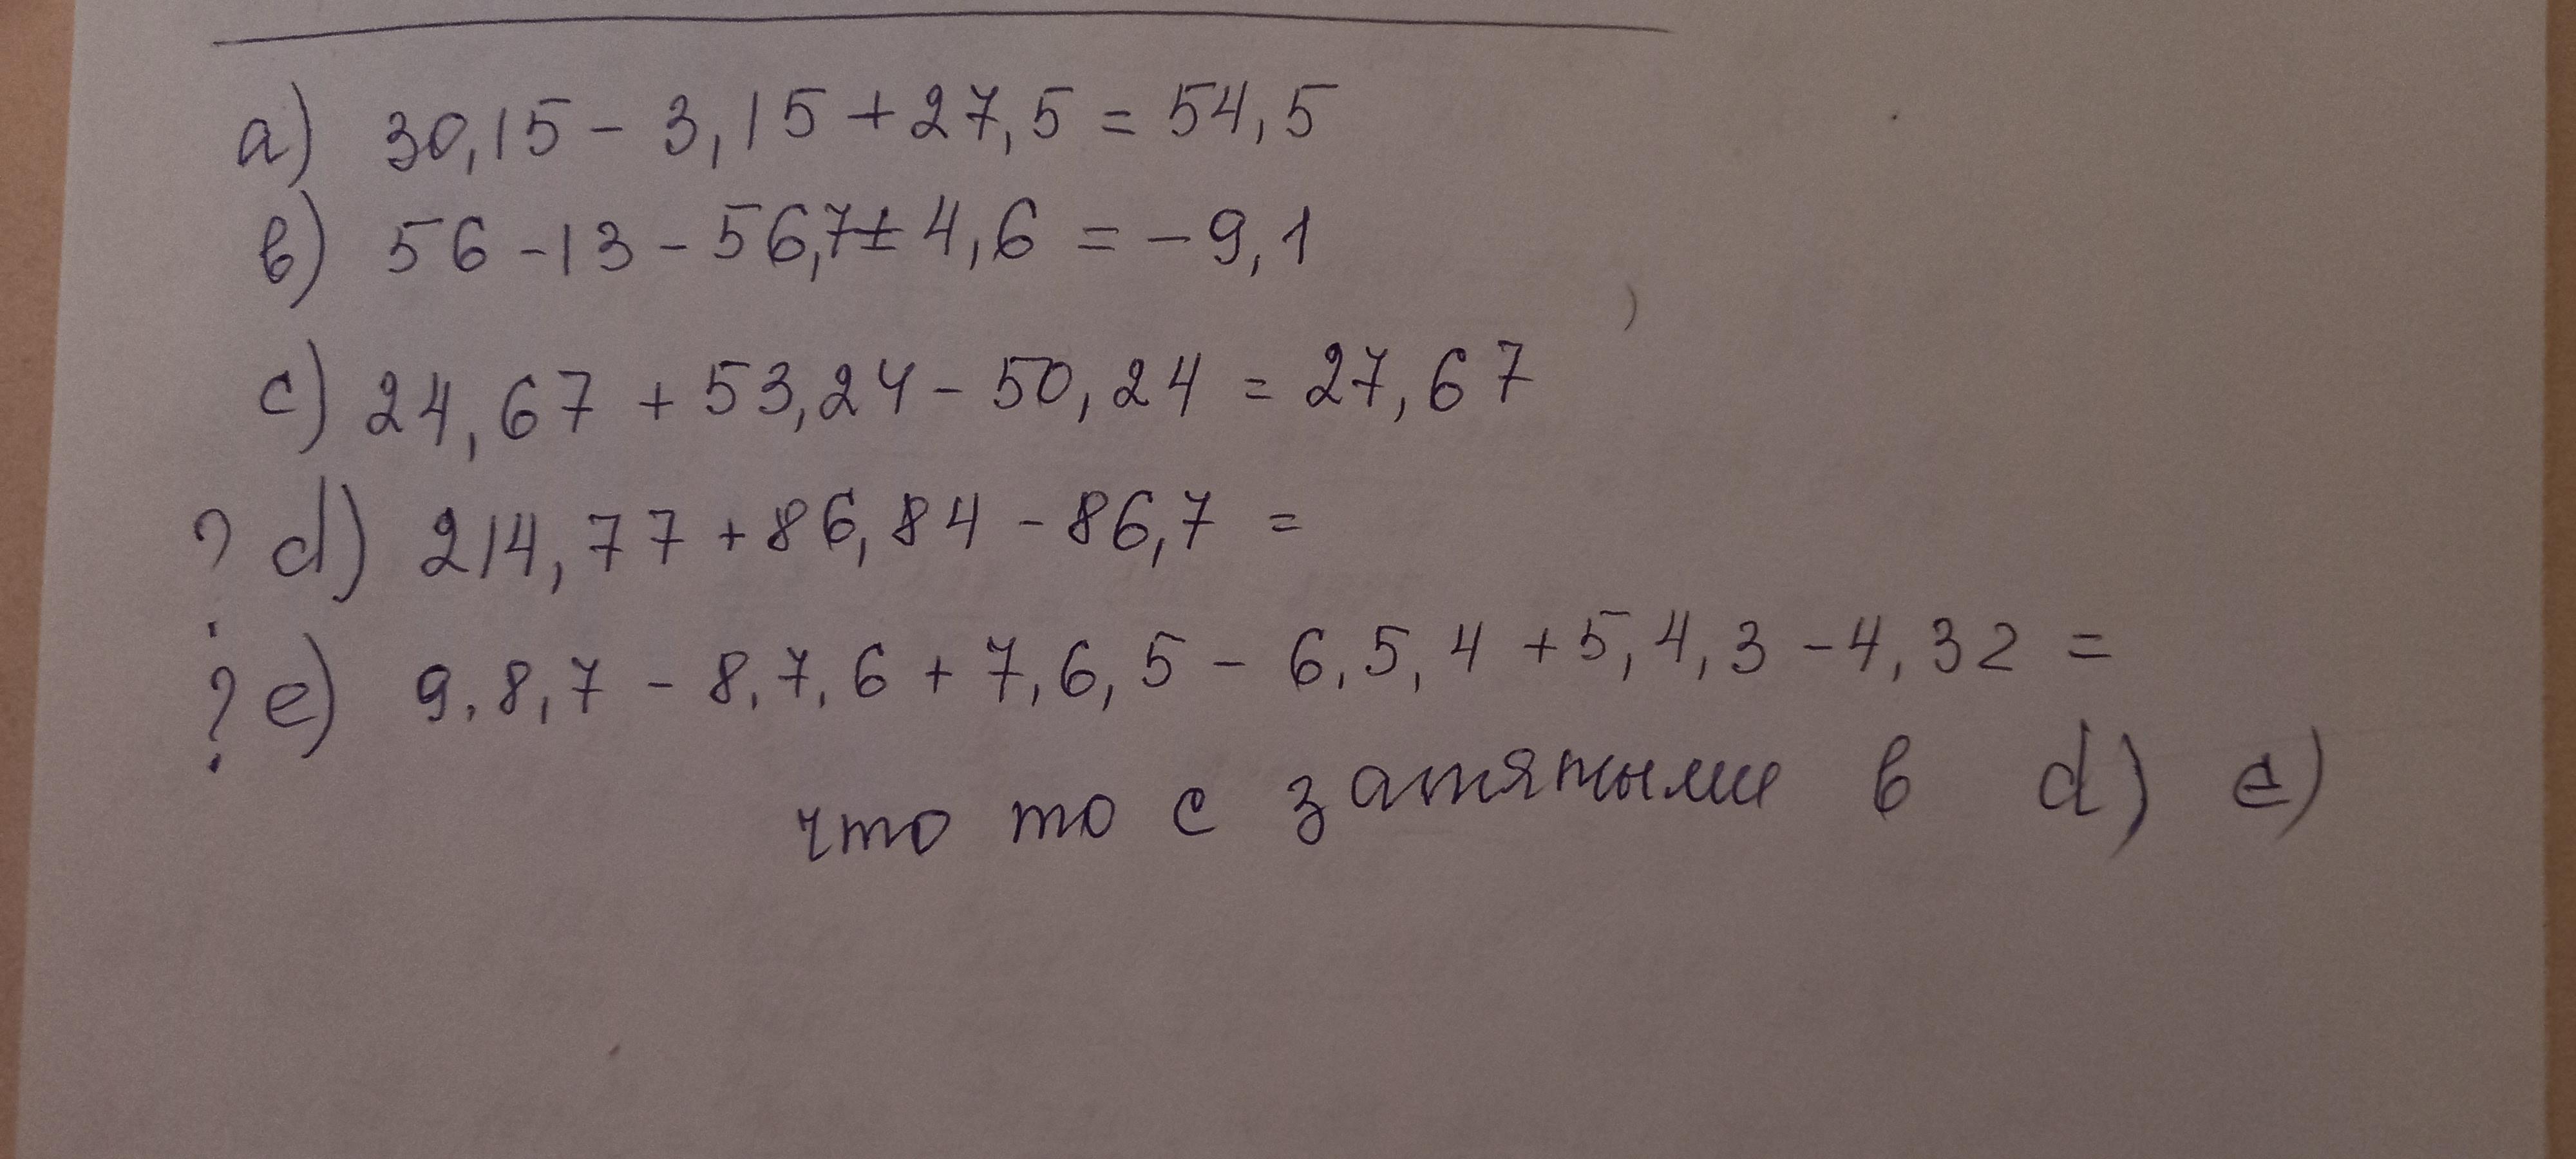 a) 30,15 - 3,15 + 27,5 = 54,5
в) 56 - 13 - 56,7 ± 4,6 = - 9,1
c) 24,67 + 53,24 - 50,24 = 27,67
? d) 214,77 + 86,84 - 86,7 =
? e) 9,8,7 - 8,7,6 + 7,6,5 - 6,5,4 + 5,4,3 - 4,32 =
что то с запятыми в d) e)